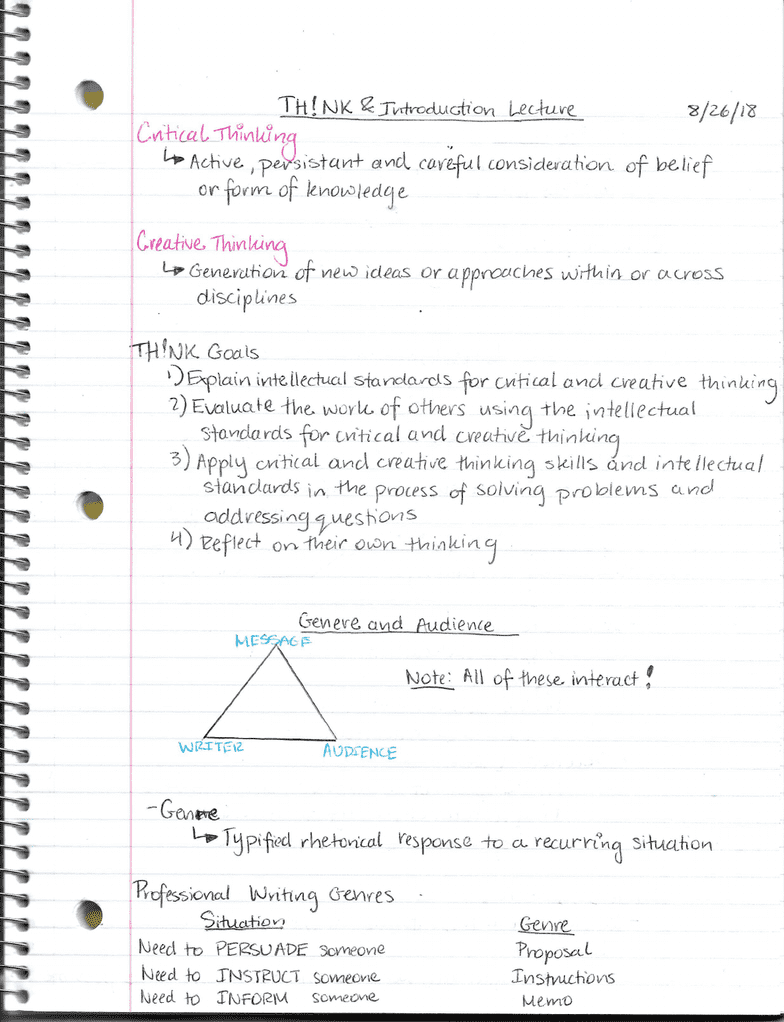 TH!NK & Introduction Lecture 8/26/18
Critical Thinking
↳ Active, persistant and careful consideration of belief
or form of knowledge
Creative Thinking
↳ Generation of new ideas or approaches within or across
disciplines
TH!NK Goals
1) Explain intellectual standards for critical and creative thinking
2) Evaluate the work of others using the intellectual
standards for critical and creative thinking
3) Apply critical and creative thinking skills and intellectual
standards in the process of solving problems and
addressing questions
4) Reflect on their own thinking
Genere and Audience
MESSAGE
Note: All of these interact!
WRITER AUDIENCE
- Genre
↳ Typified rhetorical response to a recurring situation
Professional Writing Genres
Situation Genre
Need to PERSUADE someone Proposal
Need to INSTRUCT someone Instructions
Need to INFORM someone Memo